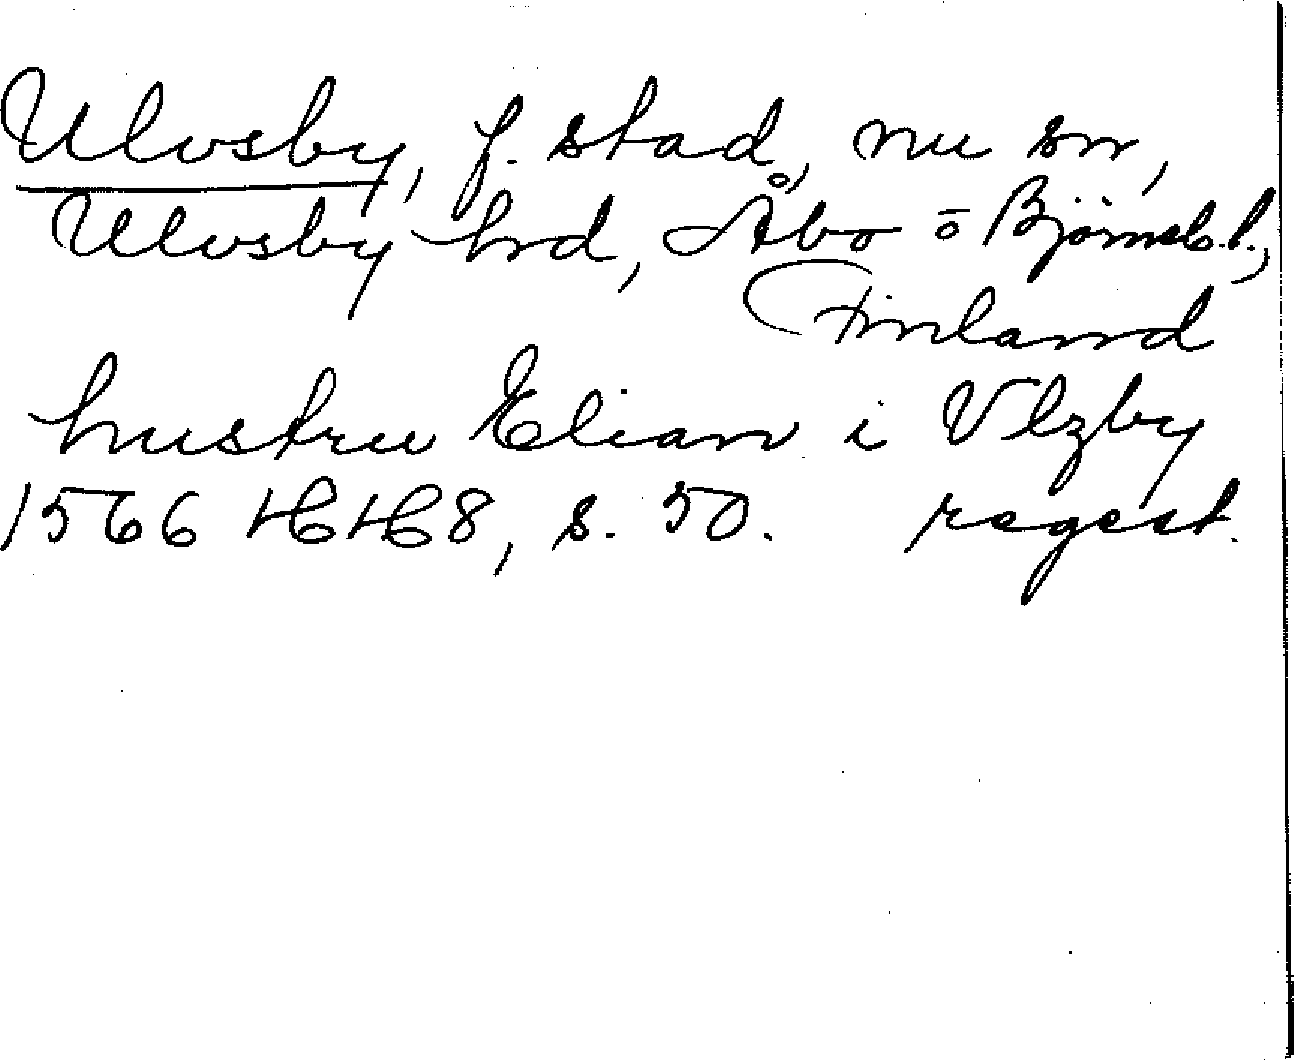 Ulvsby, f. stad, nu sn,
Ulvsby hrd, Åbo o Björneb. l.,
Finland
hustru Elian i Vlzby
1566 HH 8, s. 50. regest.